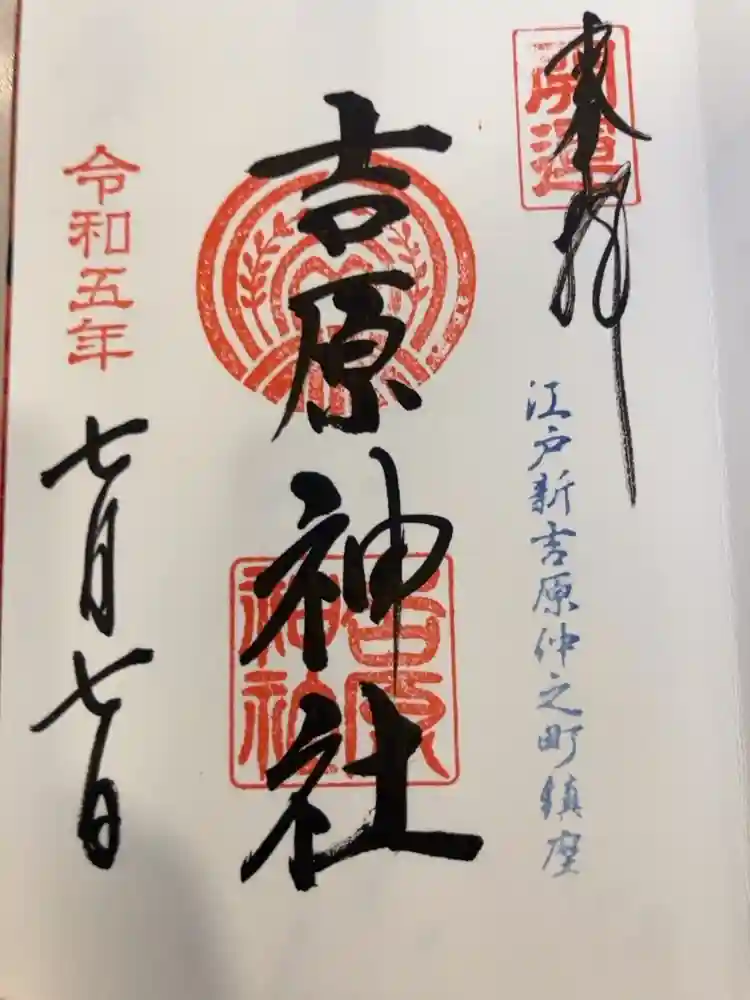 奉拝
開運
江戸新吉原仲之町鎮座
吉原神社
吉原
神社
令和五年
七月七日